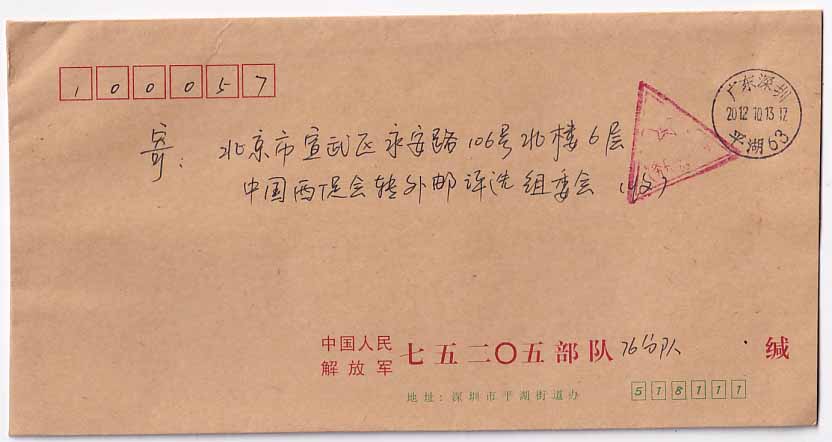 100057
广东深圳
2012 10 13 12
平湖 63
寄: 北京市宣武区永安路106号北楼6层
中国西促会转外邮评选组委会(收)
中国人民
解放军
七五二〇五部队 76分队 缄
地址: 深圳市平湖街道办
518111